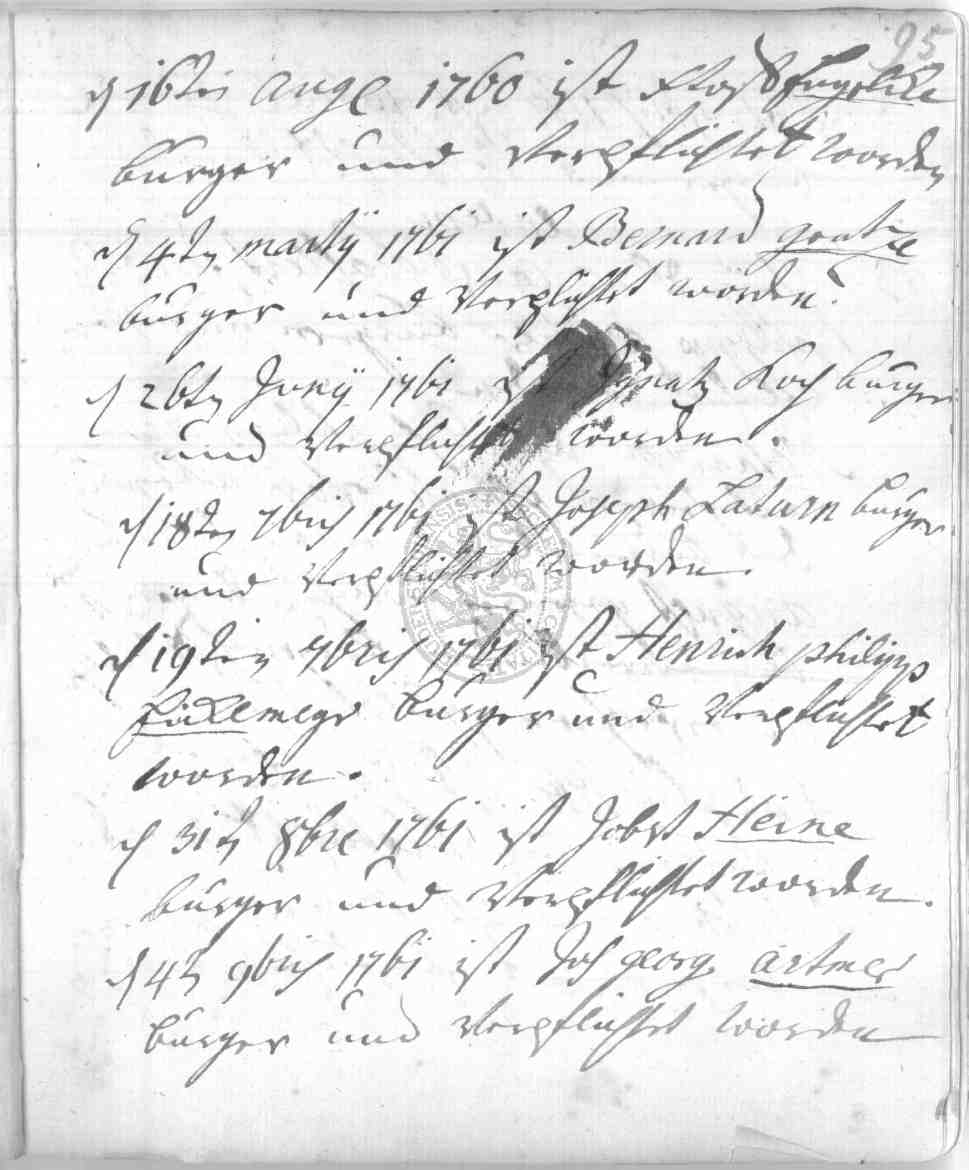 95
d 16ten aug 1760 ist
burger und Verpflichtet worden
d 4t martÿ 1761 ist Bernard
burger und Verplichtet worden.
d 26t Junÿ 1761 ist Ignatz Koch burger
und Verpflichtet worden.
d 18ten 7bris 1761 ist Joseph Laturn burger
und Verpflichtet worden.
d 19ten 7bris 1761 ist Henrich philipp
burger und Verpflichtet
worden.
d 31t 8bre 1761 ist Jobst Heine
burger und Verpflichtet worden.
d 4t 9bris 1761 ist Joh georg artmer
burger und Verpflichtet worden